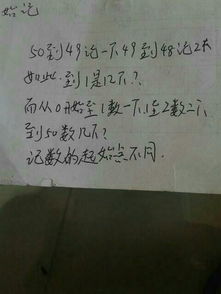 始记
50到49记一下49到48记2下
如此.到1是几下?
而从0开始至1数一下.1至2数二下
到50数几下?
记数的起始点不同.